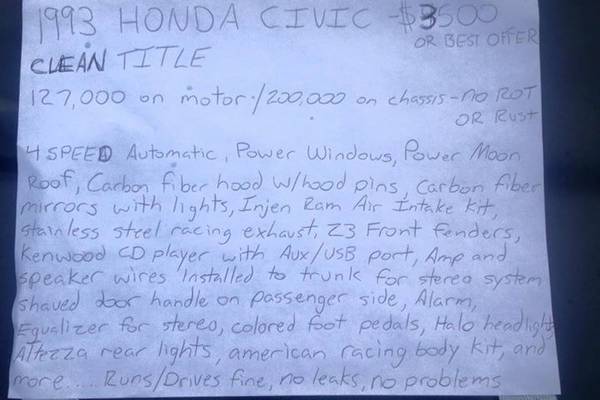 1993 HONDA CIVIC - $3500
OR BEST OFFER
CLEAN TITLE
127,000 on motor/200,000 on chassis - no ROT
OR Rust
4 SPEED Automatic, Power Windows, Power Moon
Roof, Carbon fiber hood w/hood pins, Carbon fiber
mirrors with lights, Injen Ram Air Intake kit,
stainless steel racing exhaust, Z3 Front fenders,
Kenwood CD player with Aux/USB port, Amp and
speaker wires installed to trunk for stereo system
shaved door handle on passenger side, Alarm,
Equalizer for stereo, colored foot pedals, Halo headlights
Altezza rear lights, american racing body kit, and
more.... Runs/Drives fine, no leaks, no problems